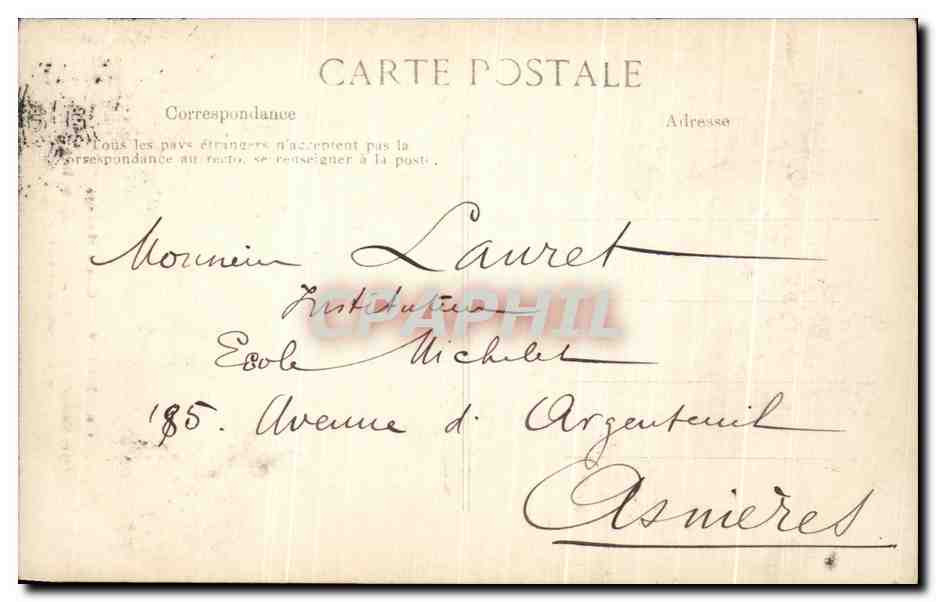 CARTE POSTALE
Correspondance
Adresse
Tous les pays étrangers n'acceptent pas la
correspondance au recto, se renseigner à la poste.
Monsieur Lauret
Instituteur
CPAPHIL
Ecole Michelet
185. Avenue d'Argenteuil
Asnières